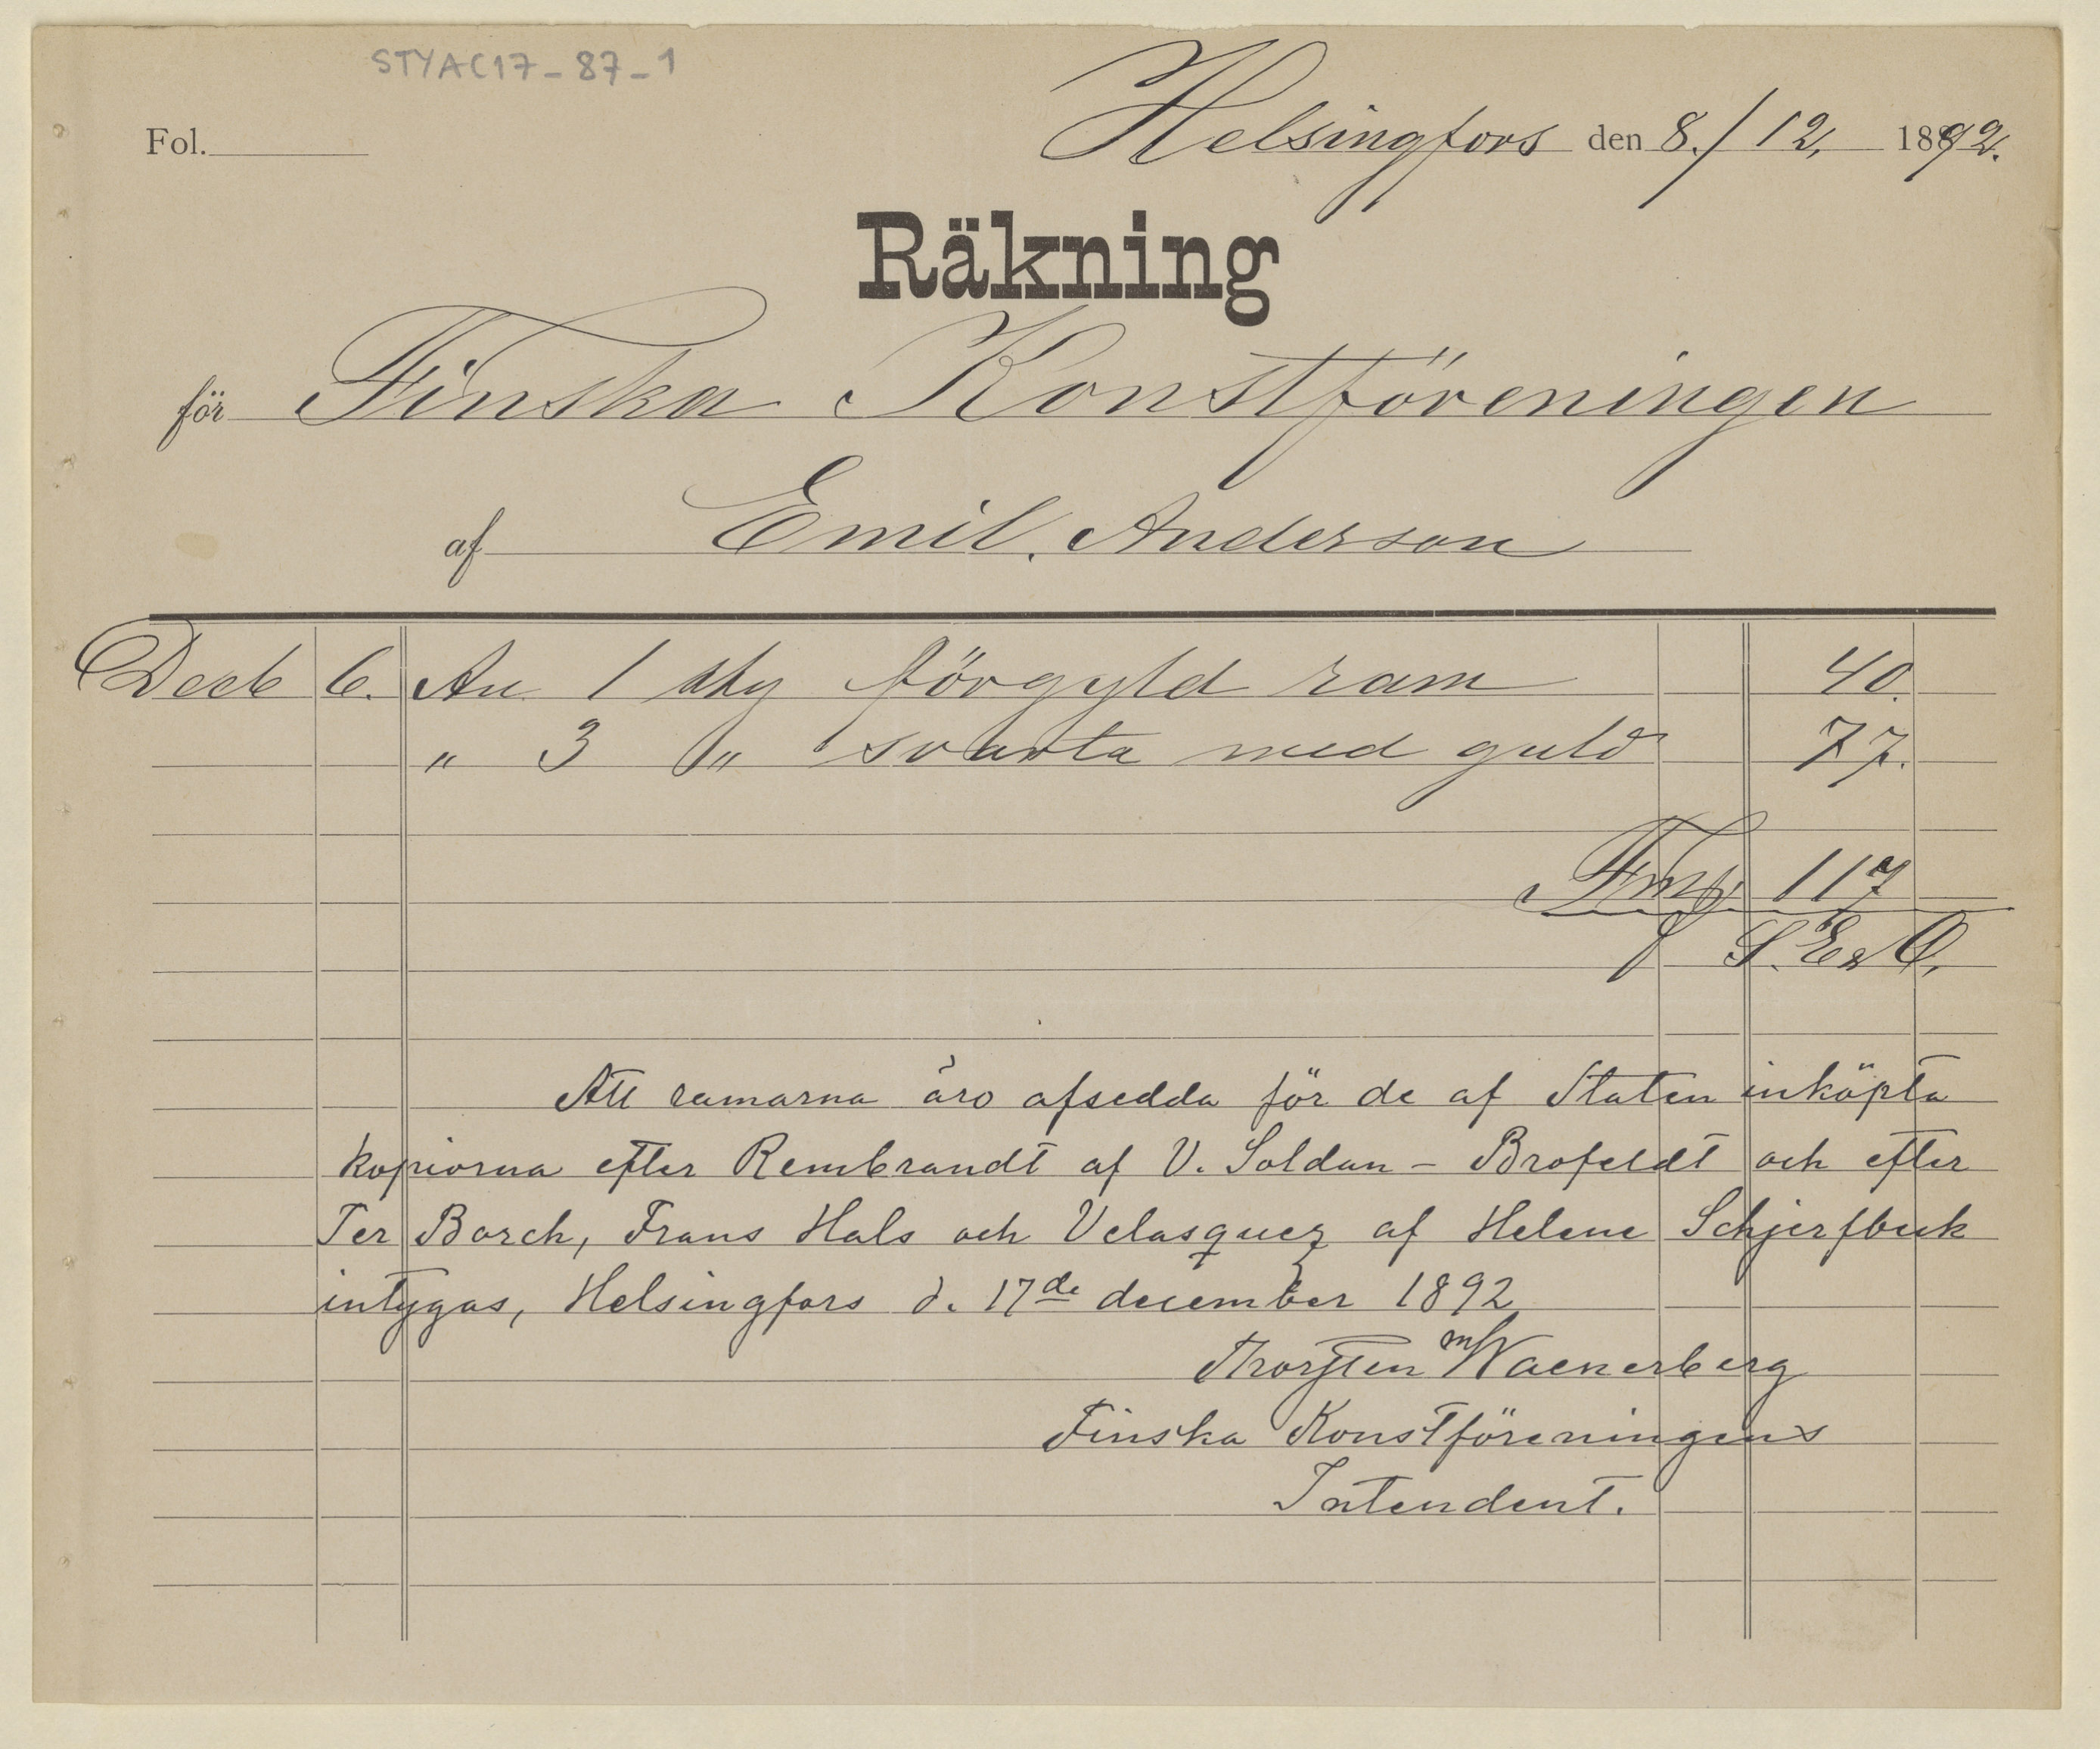 STYAC17-87-1
Fol. Helsingfors den 8./12. 1892.
Räkning
för Finska Konstföreningen
af Emil. Anderson
Decb 6. An 1 sty förgyld ram 40.
„ 3 „ svarta med guld 77.
Fmk 117
S. E. & O.
Att ramarna äro afsedda för de af Staten inköpta
kopiorna efter Rembrandt af V. Soldan-Brofeldt och efter
Ter Borch, Frans Hals och Velasquez af Helene Schjerfbeck
intygas, Helsingfors d. 17de december 1892
Thorsten Waenerberg
Finska Konstföreningens
Intendent.